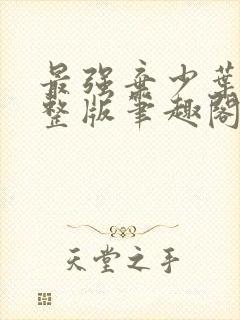 最强弃少叶
整版笔趣阁
天堂之手